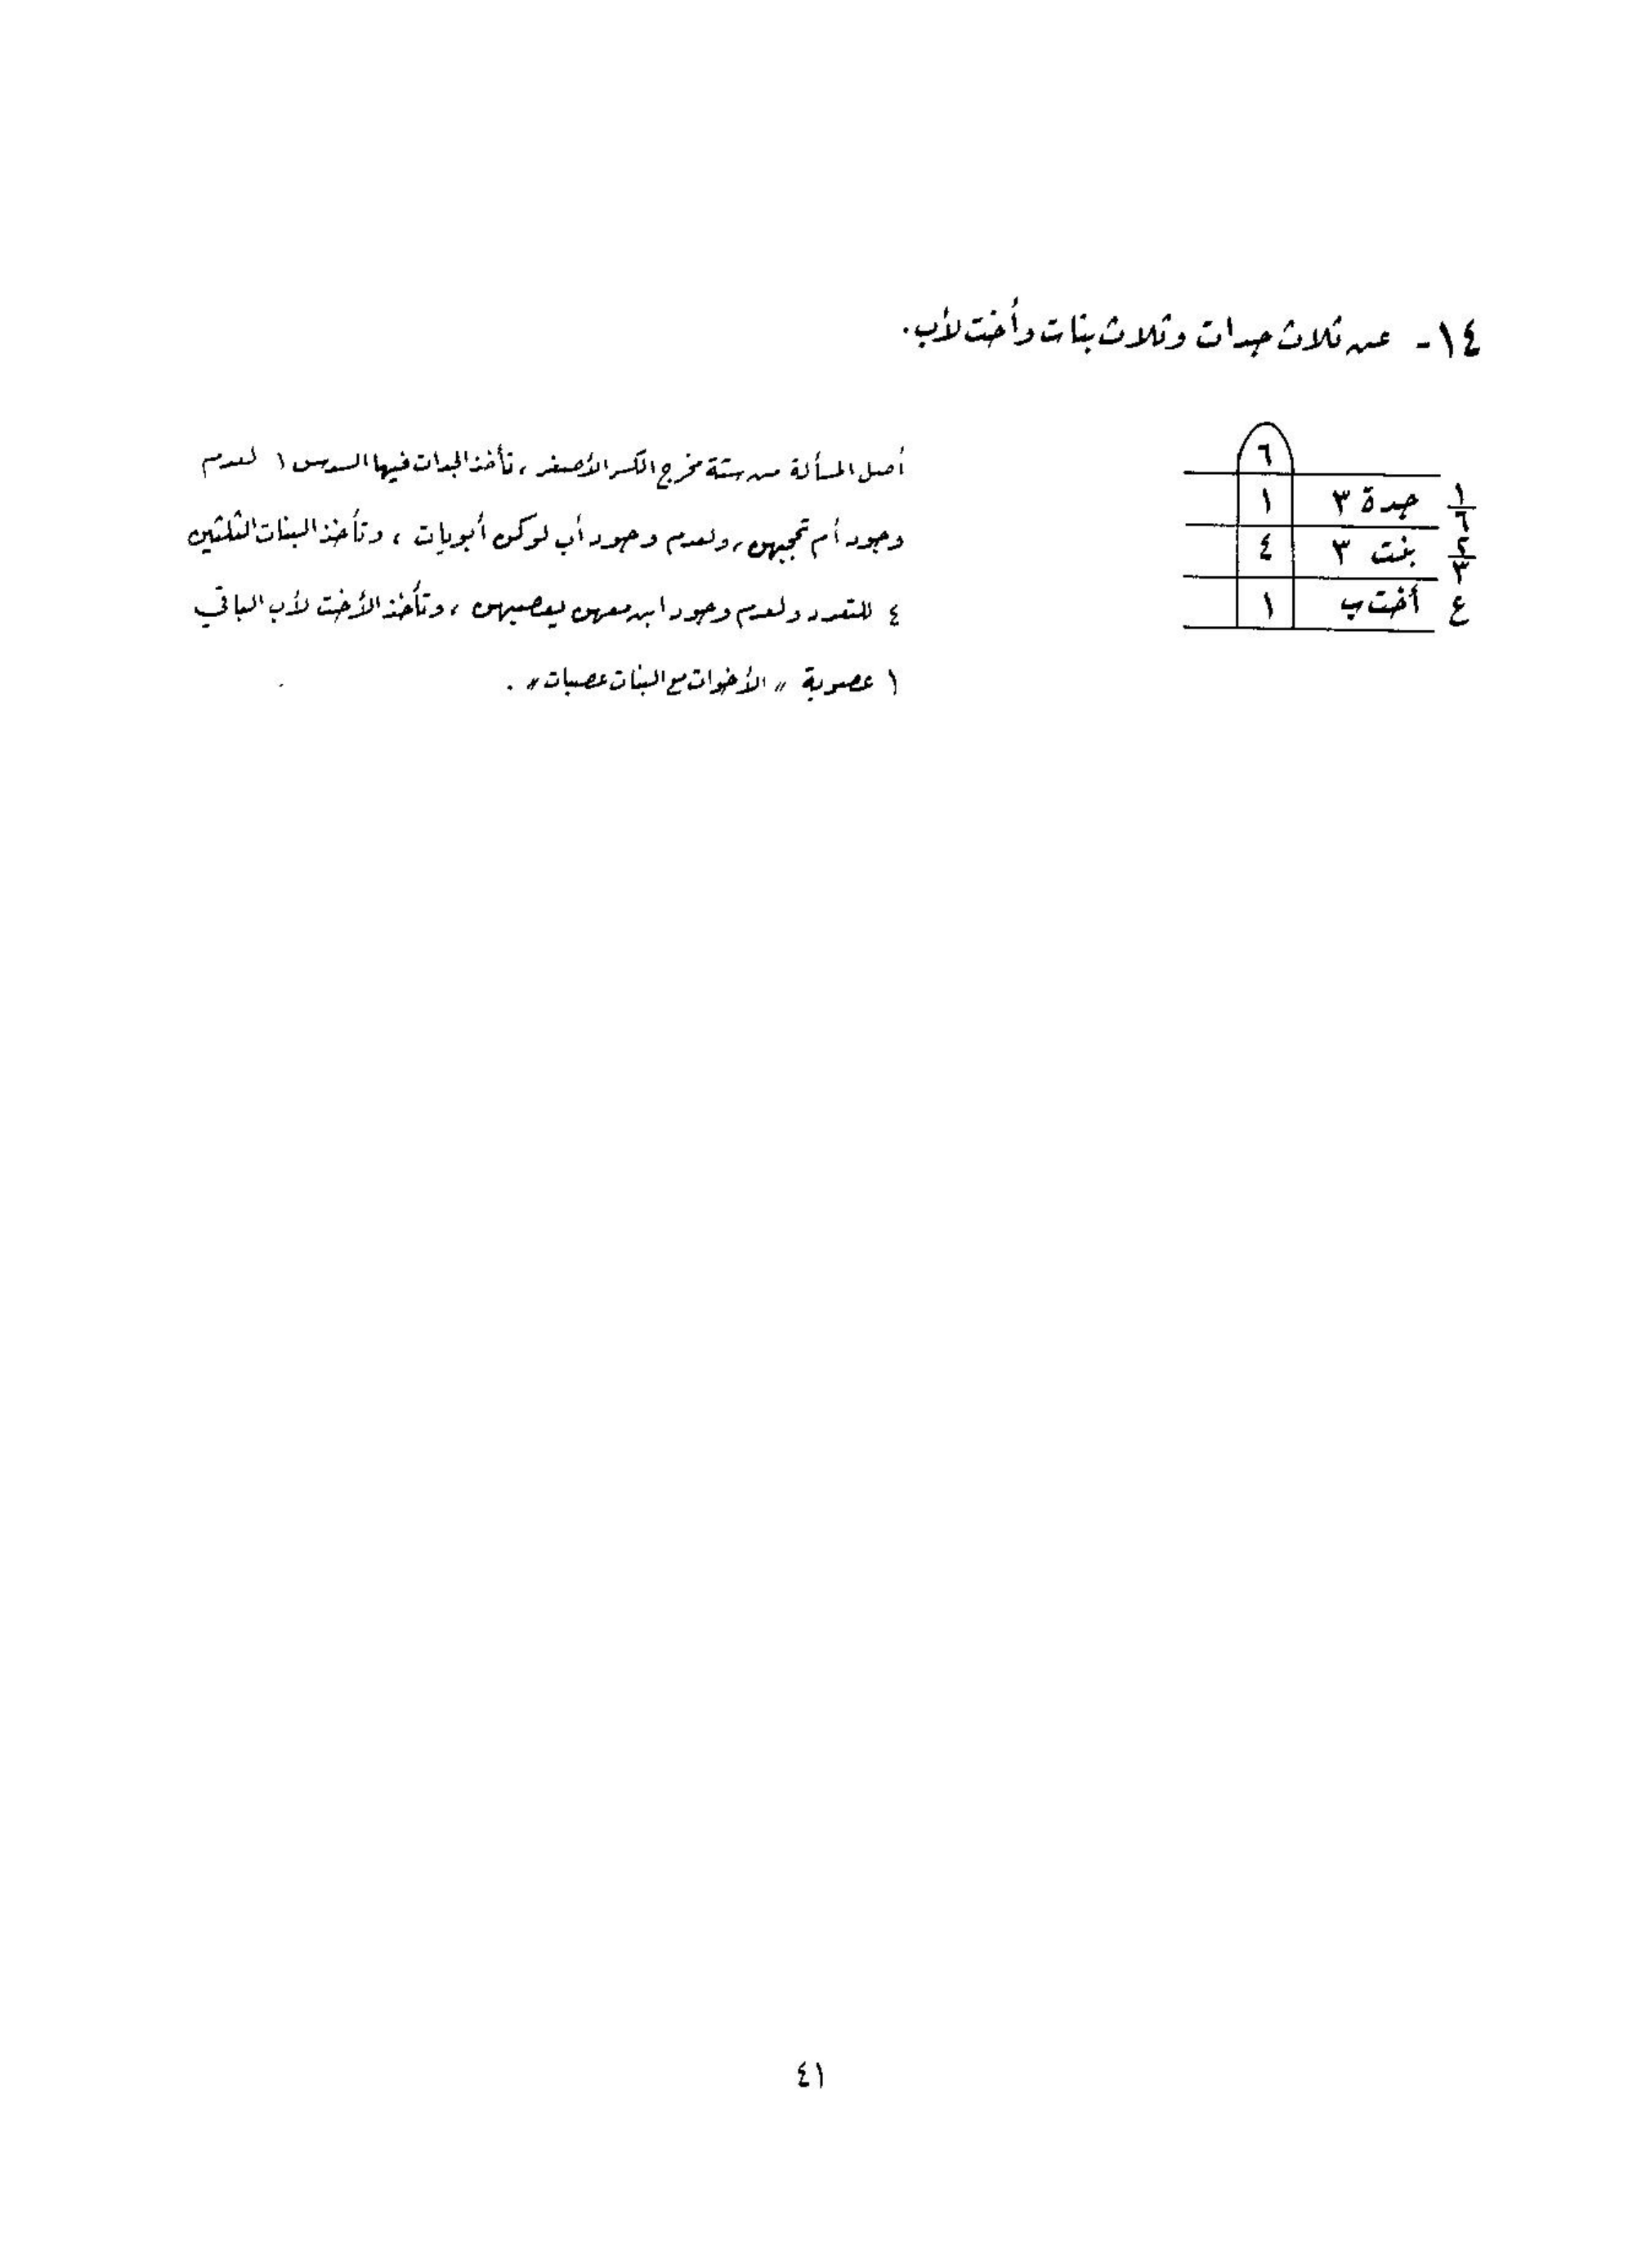 ١٤ - عن ثلاث جدات وثلاث بنات وأخت لأب.
٦
١/٦ جدة ٣ ١
٢/٣ بنت ٣ ٤
ع أخت ب ١
أصل المسألة من ستة مخرج الكسر الأصغر ، تأخذ الجدات فيها السدس ١ لعدم
وجود أم تحجبهن ، ولعدم وجود أب لوكن أبويات ، وتأخذ البنات الثلثين
٤ للتعدد ولعدم وجود ابن معهن يعصبهن ، وتأخذ الأخت لأب الباقي
١ عصوبة " الأخوات مع البنات عصبات " .
٤١